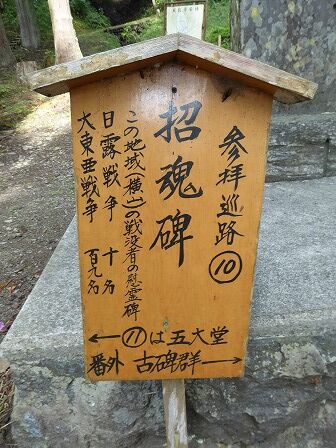 参拝巡路 ⑩
招魂碑
この地域(横山)の戦没者の慰霊碑
日露戦争 十名
大東亜戦争 百九名
←⑪は五大堂
番外 古碑群→